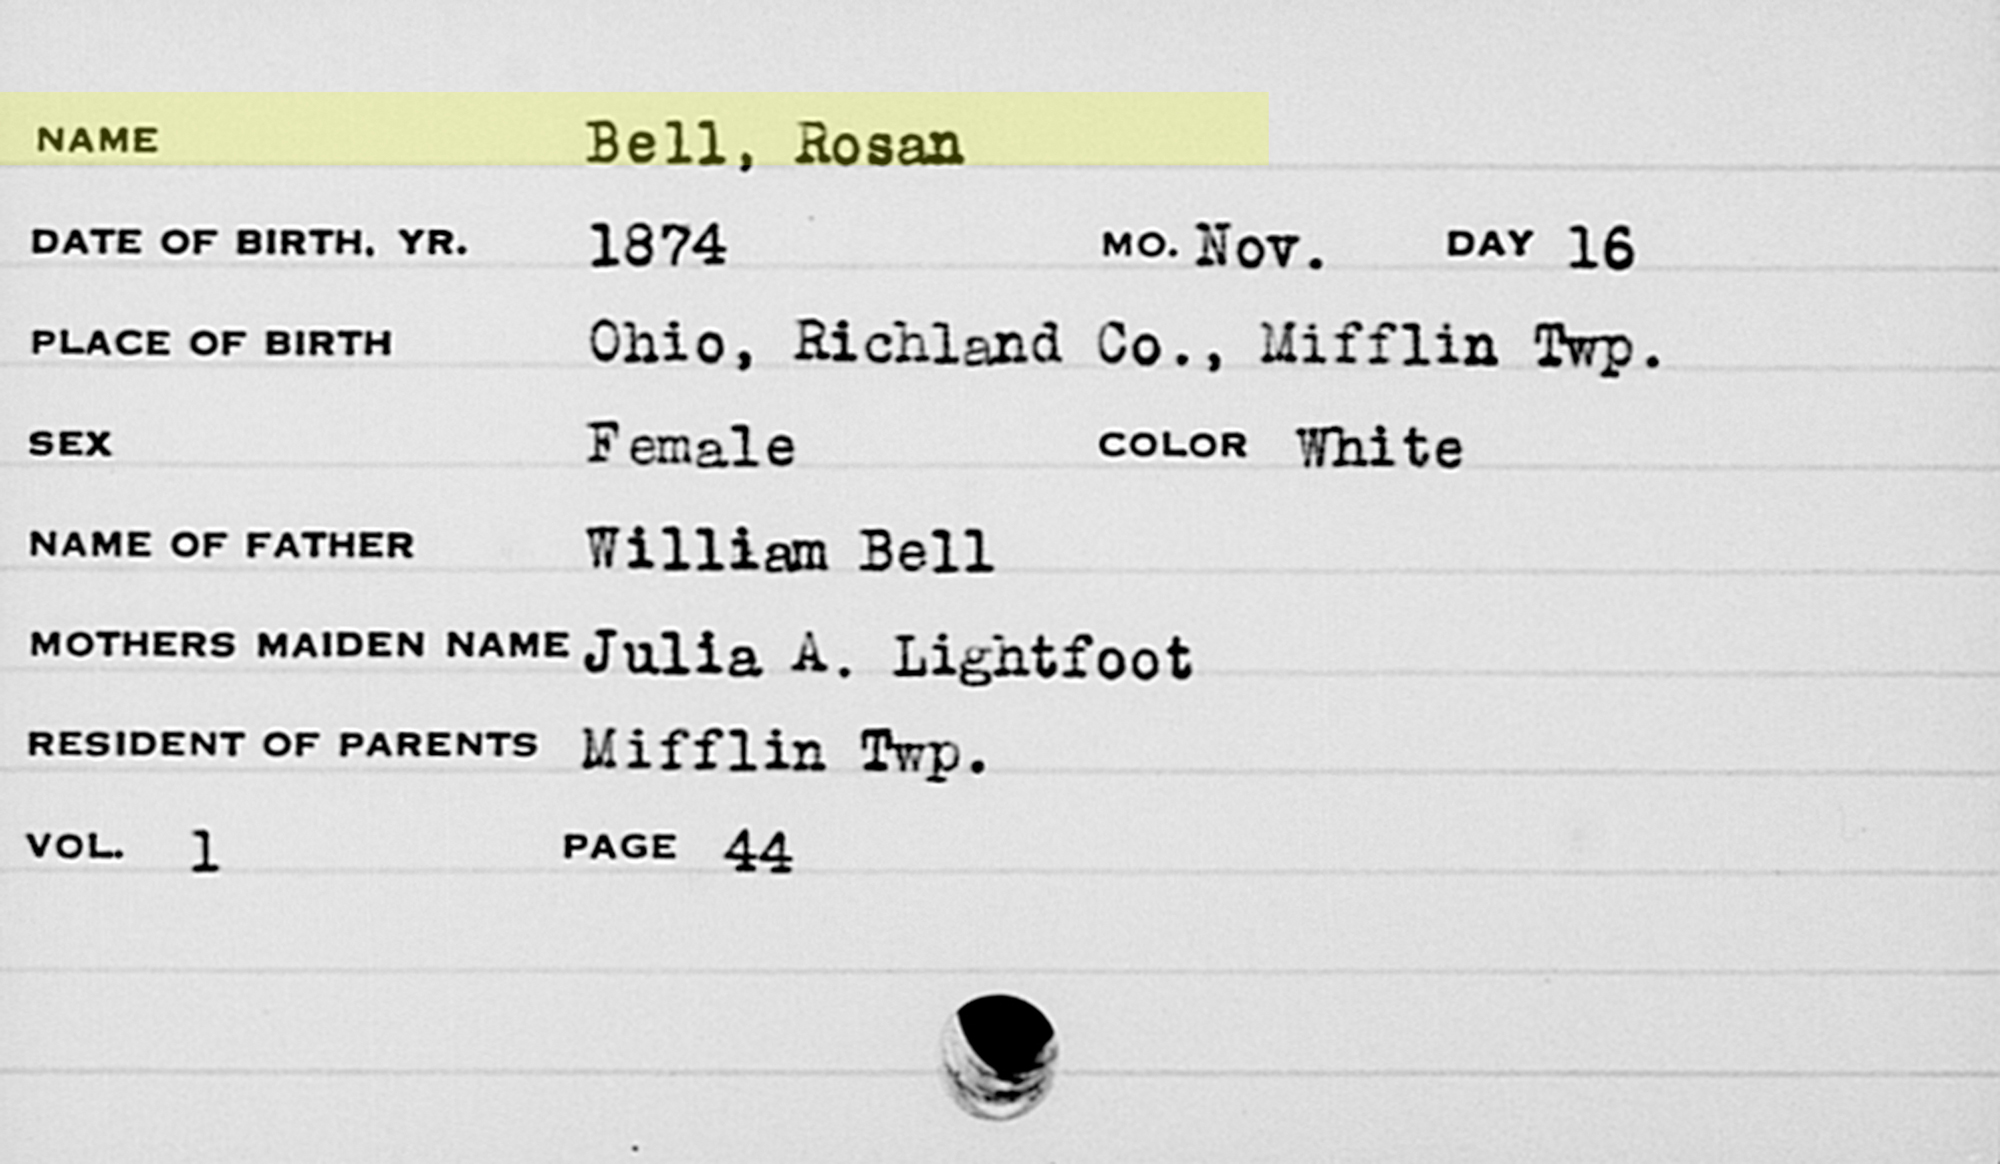 NAME Bell, Rosan
DATE OF BIRTH, YR. 1874 MO. Nov. DAY 16
PLACE OF BIRTH Ohio, Richland Co., Mifflin Twp.
SEX Female COLOR White
NAME OF FATHER William Bell
MOTHERS MAIDEN NAME Julia A. Lightfoot
RESIDENT OF PARENTS Mifflin Twp.
VOL. 1 PAGE 44